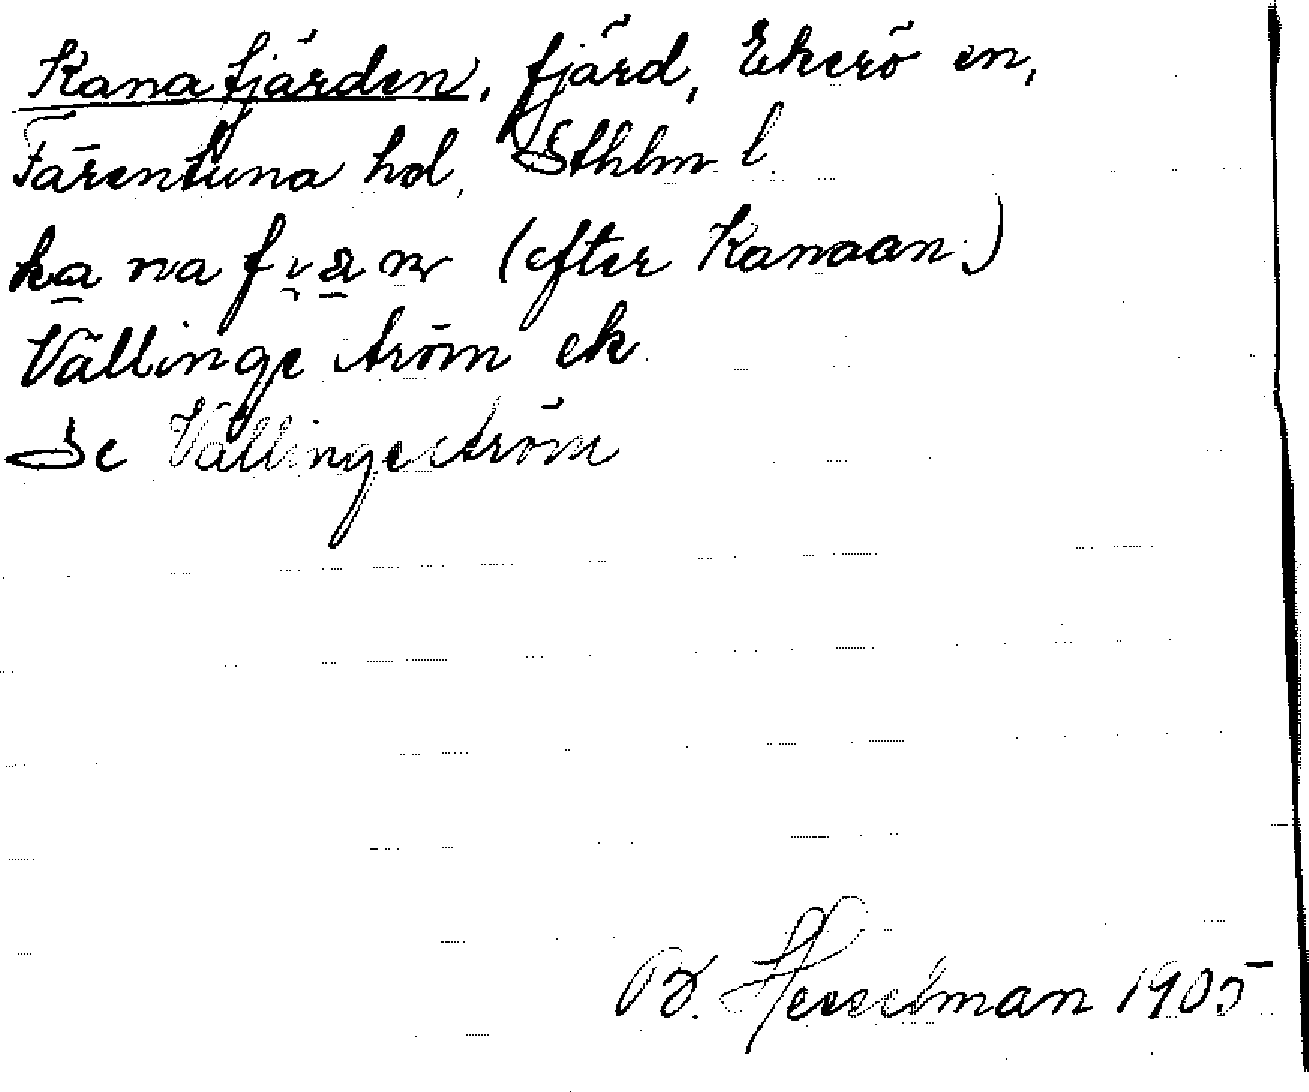 Kanafjärden, fjärd, Ekerö sn,
Färentuna hd, Sthlm l.
(efter Kanaan.)
Vällingeström ek
Se Vällingeström
B. Hesselman 1905